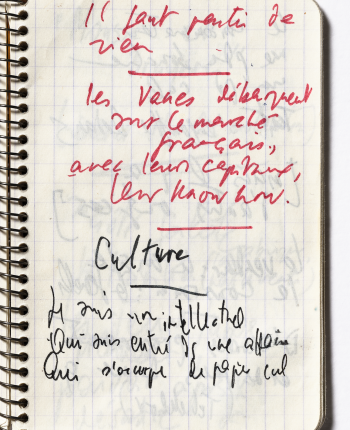 Il faut partir de
rien
les Vanes débarquent
sur le marché
français,
avec leurs capitaux,
leur know how.
Culture
Je suis un intellectuel
Qui suis entré ds une affaire
Qui s'occupe de papier cul